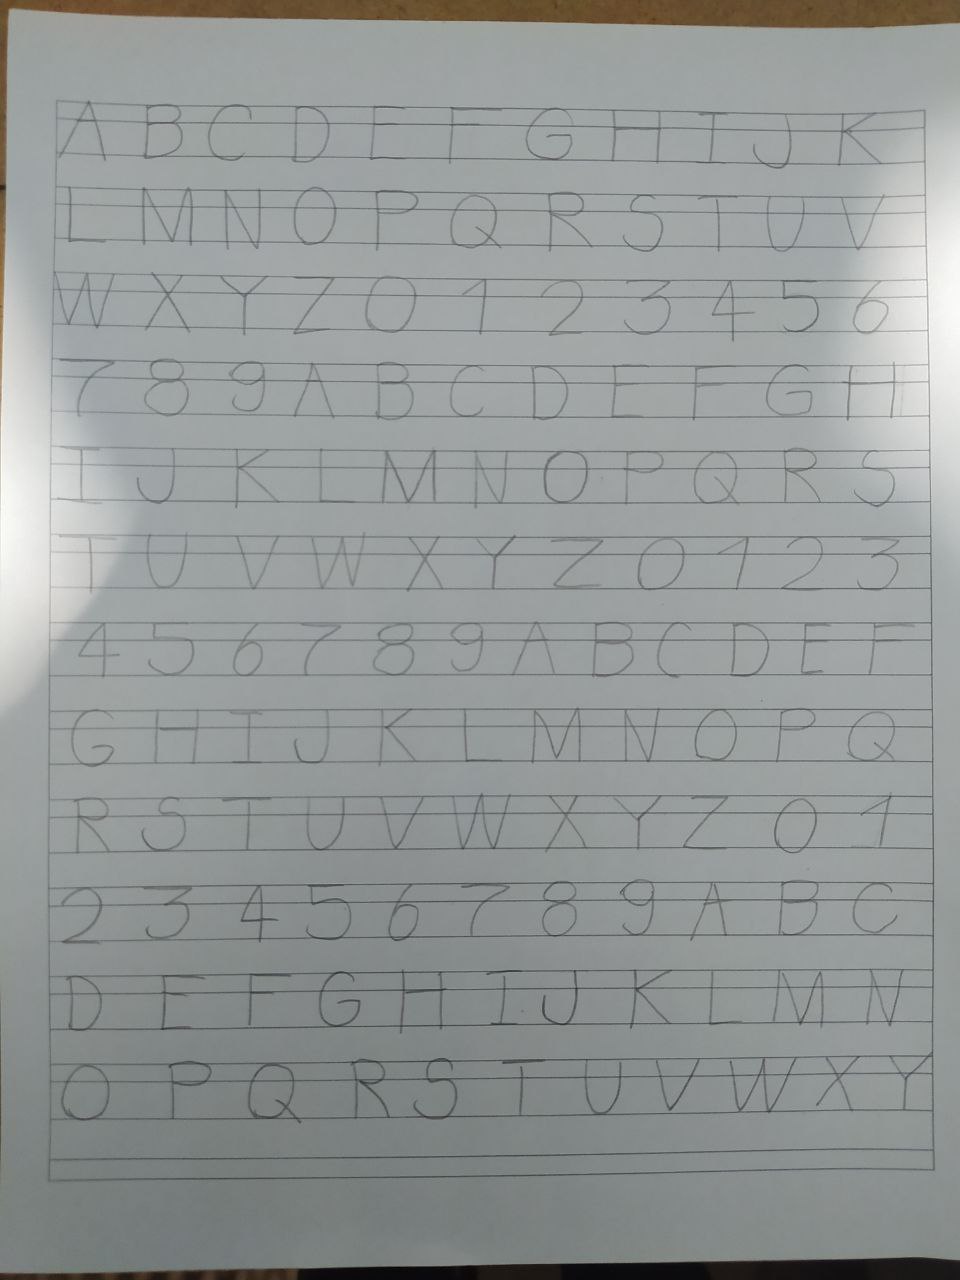 A B C D E F G H I J K
L M N O P Q R S T U V
W X Y Z 0 1 2 3 4 5 6
7 8 9 A B C D E F G H
I J K L M N O P Q R S
T U V W X Y Z 0 1 2 3
4 5 6 7 8 9 A B C D E F
G H I J K L M N O P Q
R S T U V W X Y Z 0 1
2 3 4 5 6 7 8 9 A B C
D E F G H I J K L M N
O P Q R S T U V W X Y